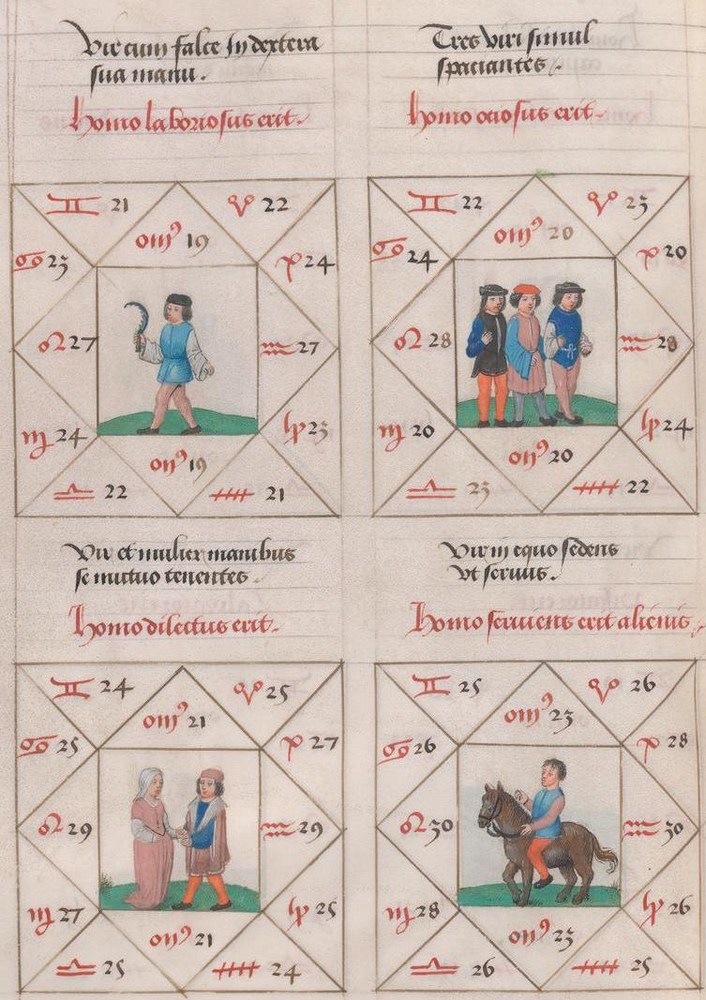 Vir cum falce In dextera
sua manu.
Homo laboriosus erit.
♊ 21
♉ 22
on9 19
♋ 23
♓ 24
♌ 27
♒ 27
♍ 24
♑ 23
on9 19
♎ 22
21
Tres viri simul
spaciantes.
Homo ociosus erit.
♊ 22
♉ 23
on9 20
♋ 24
♓ 20
♌ 28
♒ 28
♍ 20
♑ 24
on9 20
♎ 23
22
Vir et mulier manibus
se mutuo tenentes.
Homo dilectus erit.
♊ 24
♉ 25
on9 21
♋ 25
♓ 27
♌ 29
♒ 29
♍ 27
♑ 25
on9 21
♎ 25
24
Vir in equo sedens
vt seruus.
Homo seruiens erit alienis.
♊ 25
♉ 26
on9 23
♋ 26
♓ 28
♌ 30
♒ 30
♍ 28
♑ 26
on9 23
♎ 26
25